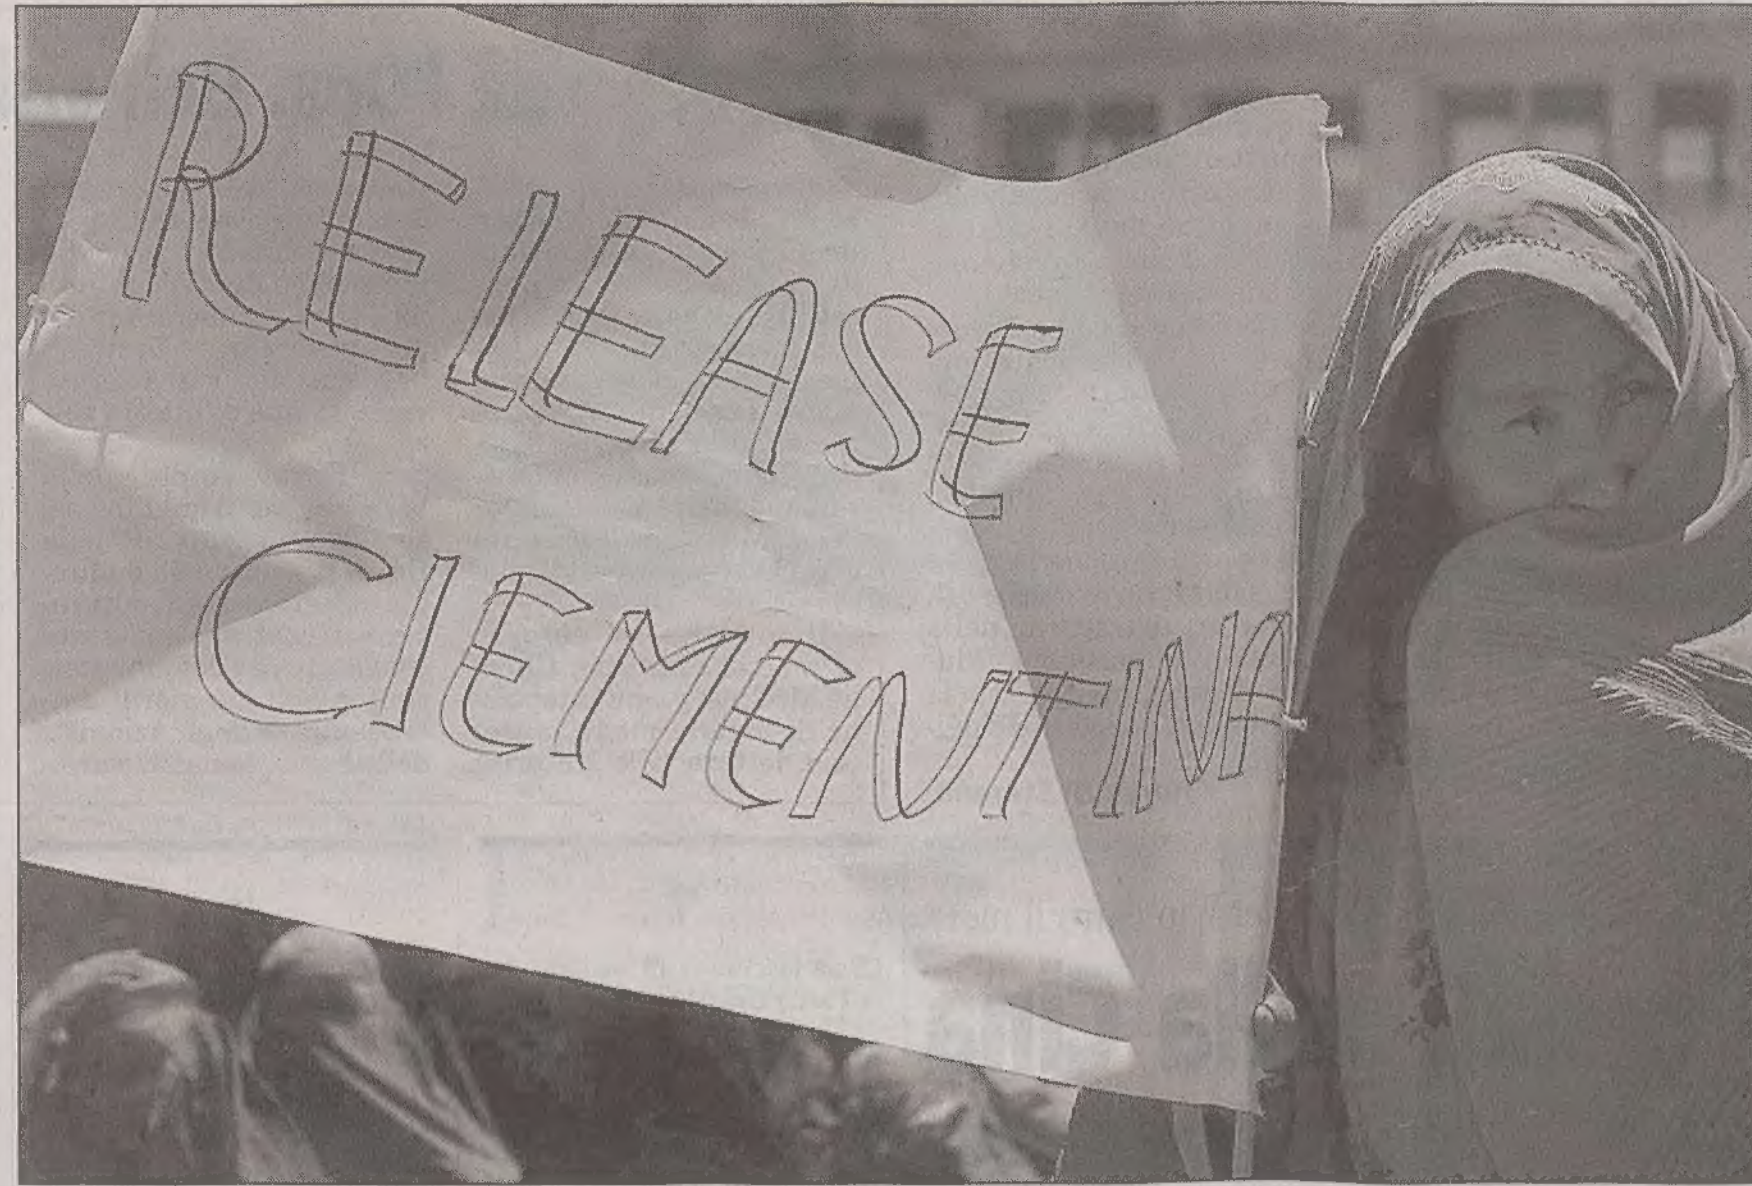 RELEASE
ClEMENTINA